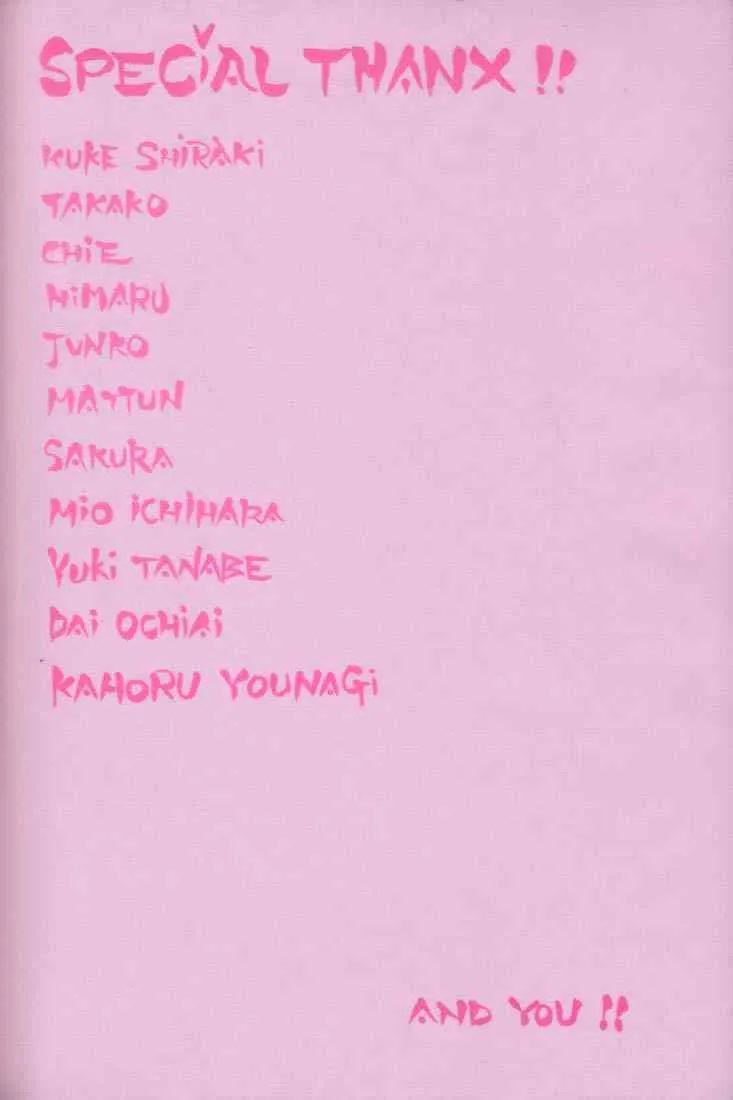 SPECiAL THANX !!
KUKE SHiRAKi
TAKAKO
CHiE
HiMARU
JUNKO
MAYTUN
SAKURA
MiO iCHiHARA
YUKi TANABE
DAi OCHiAi
KAHORU YOUNAGi
AND YOU !!